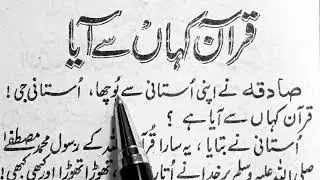 قرآن کہاں سے آیا
صادقہ نے اپنی اُستانی سے پُوچھا، اُستانی جی!
قرآن کہاں سے آیا ہے ؟
اُستانی نے بتایا، یہ سارا قُرآن کے رسول محمد مصطفےٰ
صلی اللہ علیہ وسلم پر خدا نے اُتارا تھوڑا تھوڑا اور کبھی کبھی!